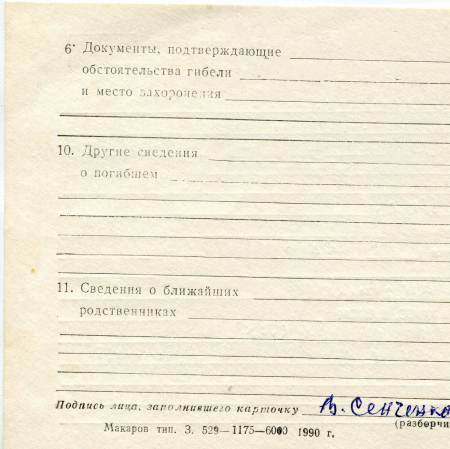 6. Документы, подтверждающие
обстоятельства гибели
и место захоронения
10. Другие сведения
о погибшем
11. Сведения о ближайших
родственниках
Подпись лица, заполнившего карточку В. Сенченко
(разборчи
Макаров тип. З. 529—1175—6000 1990 г.